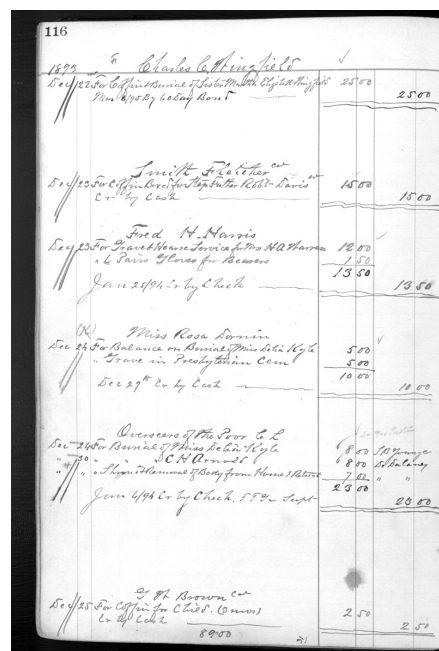 116
1893 Charles C. Wingfield
Dec 22 For Coffin & Burial of Sister Martha Elizth Wingfield 25 00
By 60 Day Bond 25 00
Smith Fletcher col
Dec 23 For Coffin & Box for Step Father Robt Davis 15 00
Cr by Cash 15 00
Fred H. Harris
Dec 23 For Grave & Hearse Service for Mrs H A Warren 12 00
" 6 Pairs Gloves for Bearers 1 50
13 50
Jan 25/94 Cr by Check 13 50
Miss Rosa Dornin
Dec 24 For Balance on Burial of Miss Delia Kyle 5 00
" Grave in Presbyterian Cem 5 00
10 00
Dec 29th Cr by Cash 10 00
Overseers of the Poor C L
Dec 24 For Burial of Miss Delia Kyle 8 00
" 30 " " C H Arnold 8 00 Dr Dulaney
" " " Removal of Body from House 7 00 " "
23 00
Jan 6/94 Cr by Check 23 00
Brown col
Dec 25 For Coffin for Child. (6 mos) 2 50
Cr by Cash 2 50
89 00